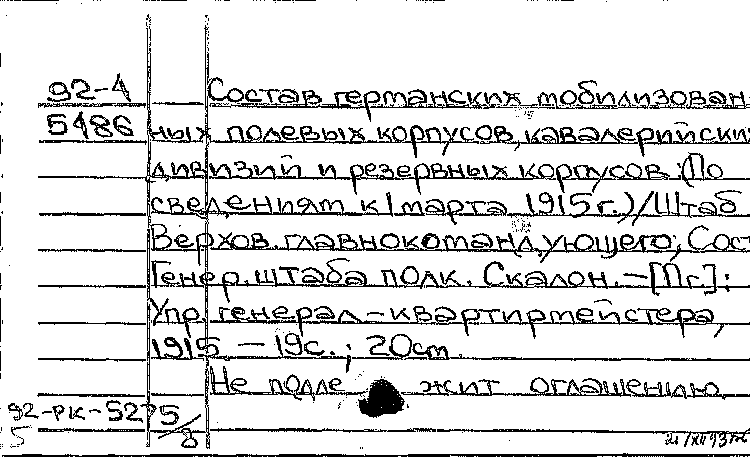 92-4
5486
Состав германских мобилизован-
ных полевых корпусов, кавалерийских
дивизий и резервных корпусов: (По
сведениям к 1 марта 1915 г.) / Штаб
Верхов. главнокомандующего; Сост.
Генер. штаба полк. Скалон. – [Пг.]:
Упр. генерал-квартирмейстера,
1915. – 19с.; 20см.
Не подлежит оглашению.
92-РК-5275
5/8